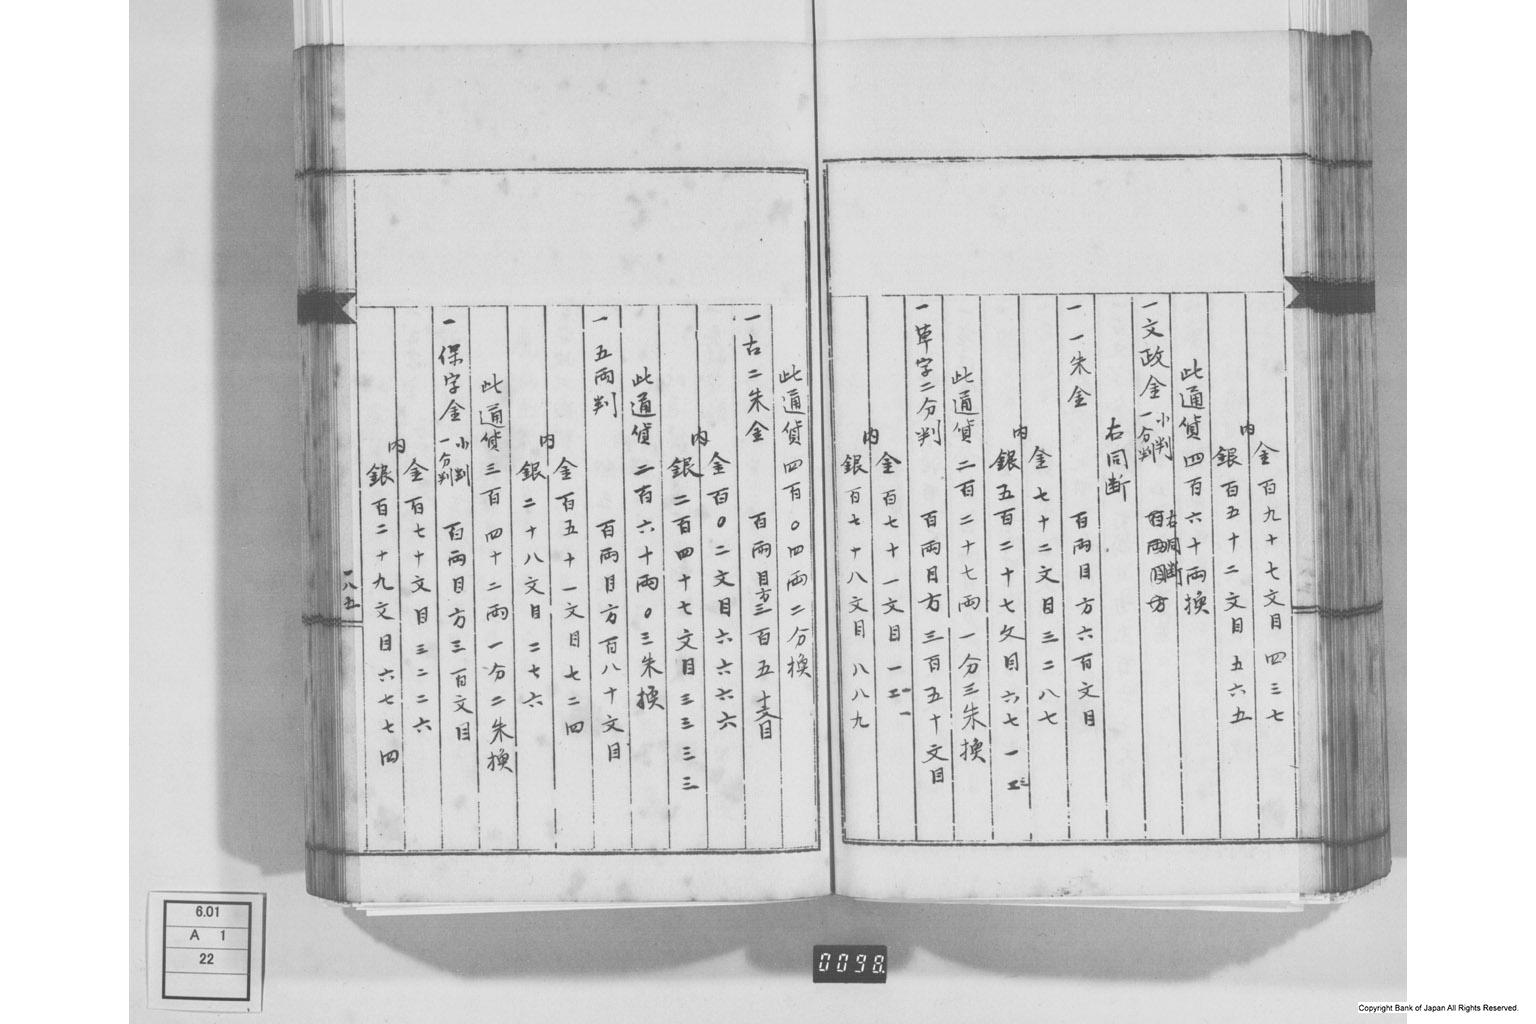 金百九十七文目四三七
内
銀百五十二文目五六五
此通貨四百六十両換
一文政金小判一分判 百両目方右同断
右同断
一一朱金 百両目方六百文目
金七十二文目三二八七
内
銀五百二十七文目六七一三
此通貨二百二十七両一分三朱換
一草字二分判 百両目方三百五十文目
金百七十一文目一一一
内
銀百七十八文目八八九
此通貨四百〇四両二分換
一古二朱金 百両目方三百五十文目
金百〇二文目六六六六
内
銀二百四十七文目三三三三
此通貨二百六十両〇三朱換
一五両判 百両目方百八十文目
金百五十一文目七二四
内
銀二十八文目二七六
此通貨三百四十二両一分二朱換
一保字金小判一分判 百両目方三百文目
金百七十文目三二二六
内
銀百二十九文目六七七四
一八五
6.01
A 1
22
0098
Copyright Bank of Japan All Rights Reserved.